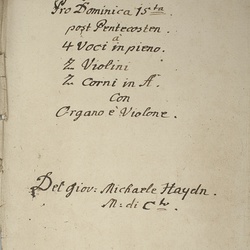 Pro Dominica 15ta
post Pentecosten.
à
4 Voci in pieno.
2 Violini
2 Corni in A.
Con
Organo è Violone.
Del Giov: Michaele Haydn.
M: di C